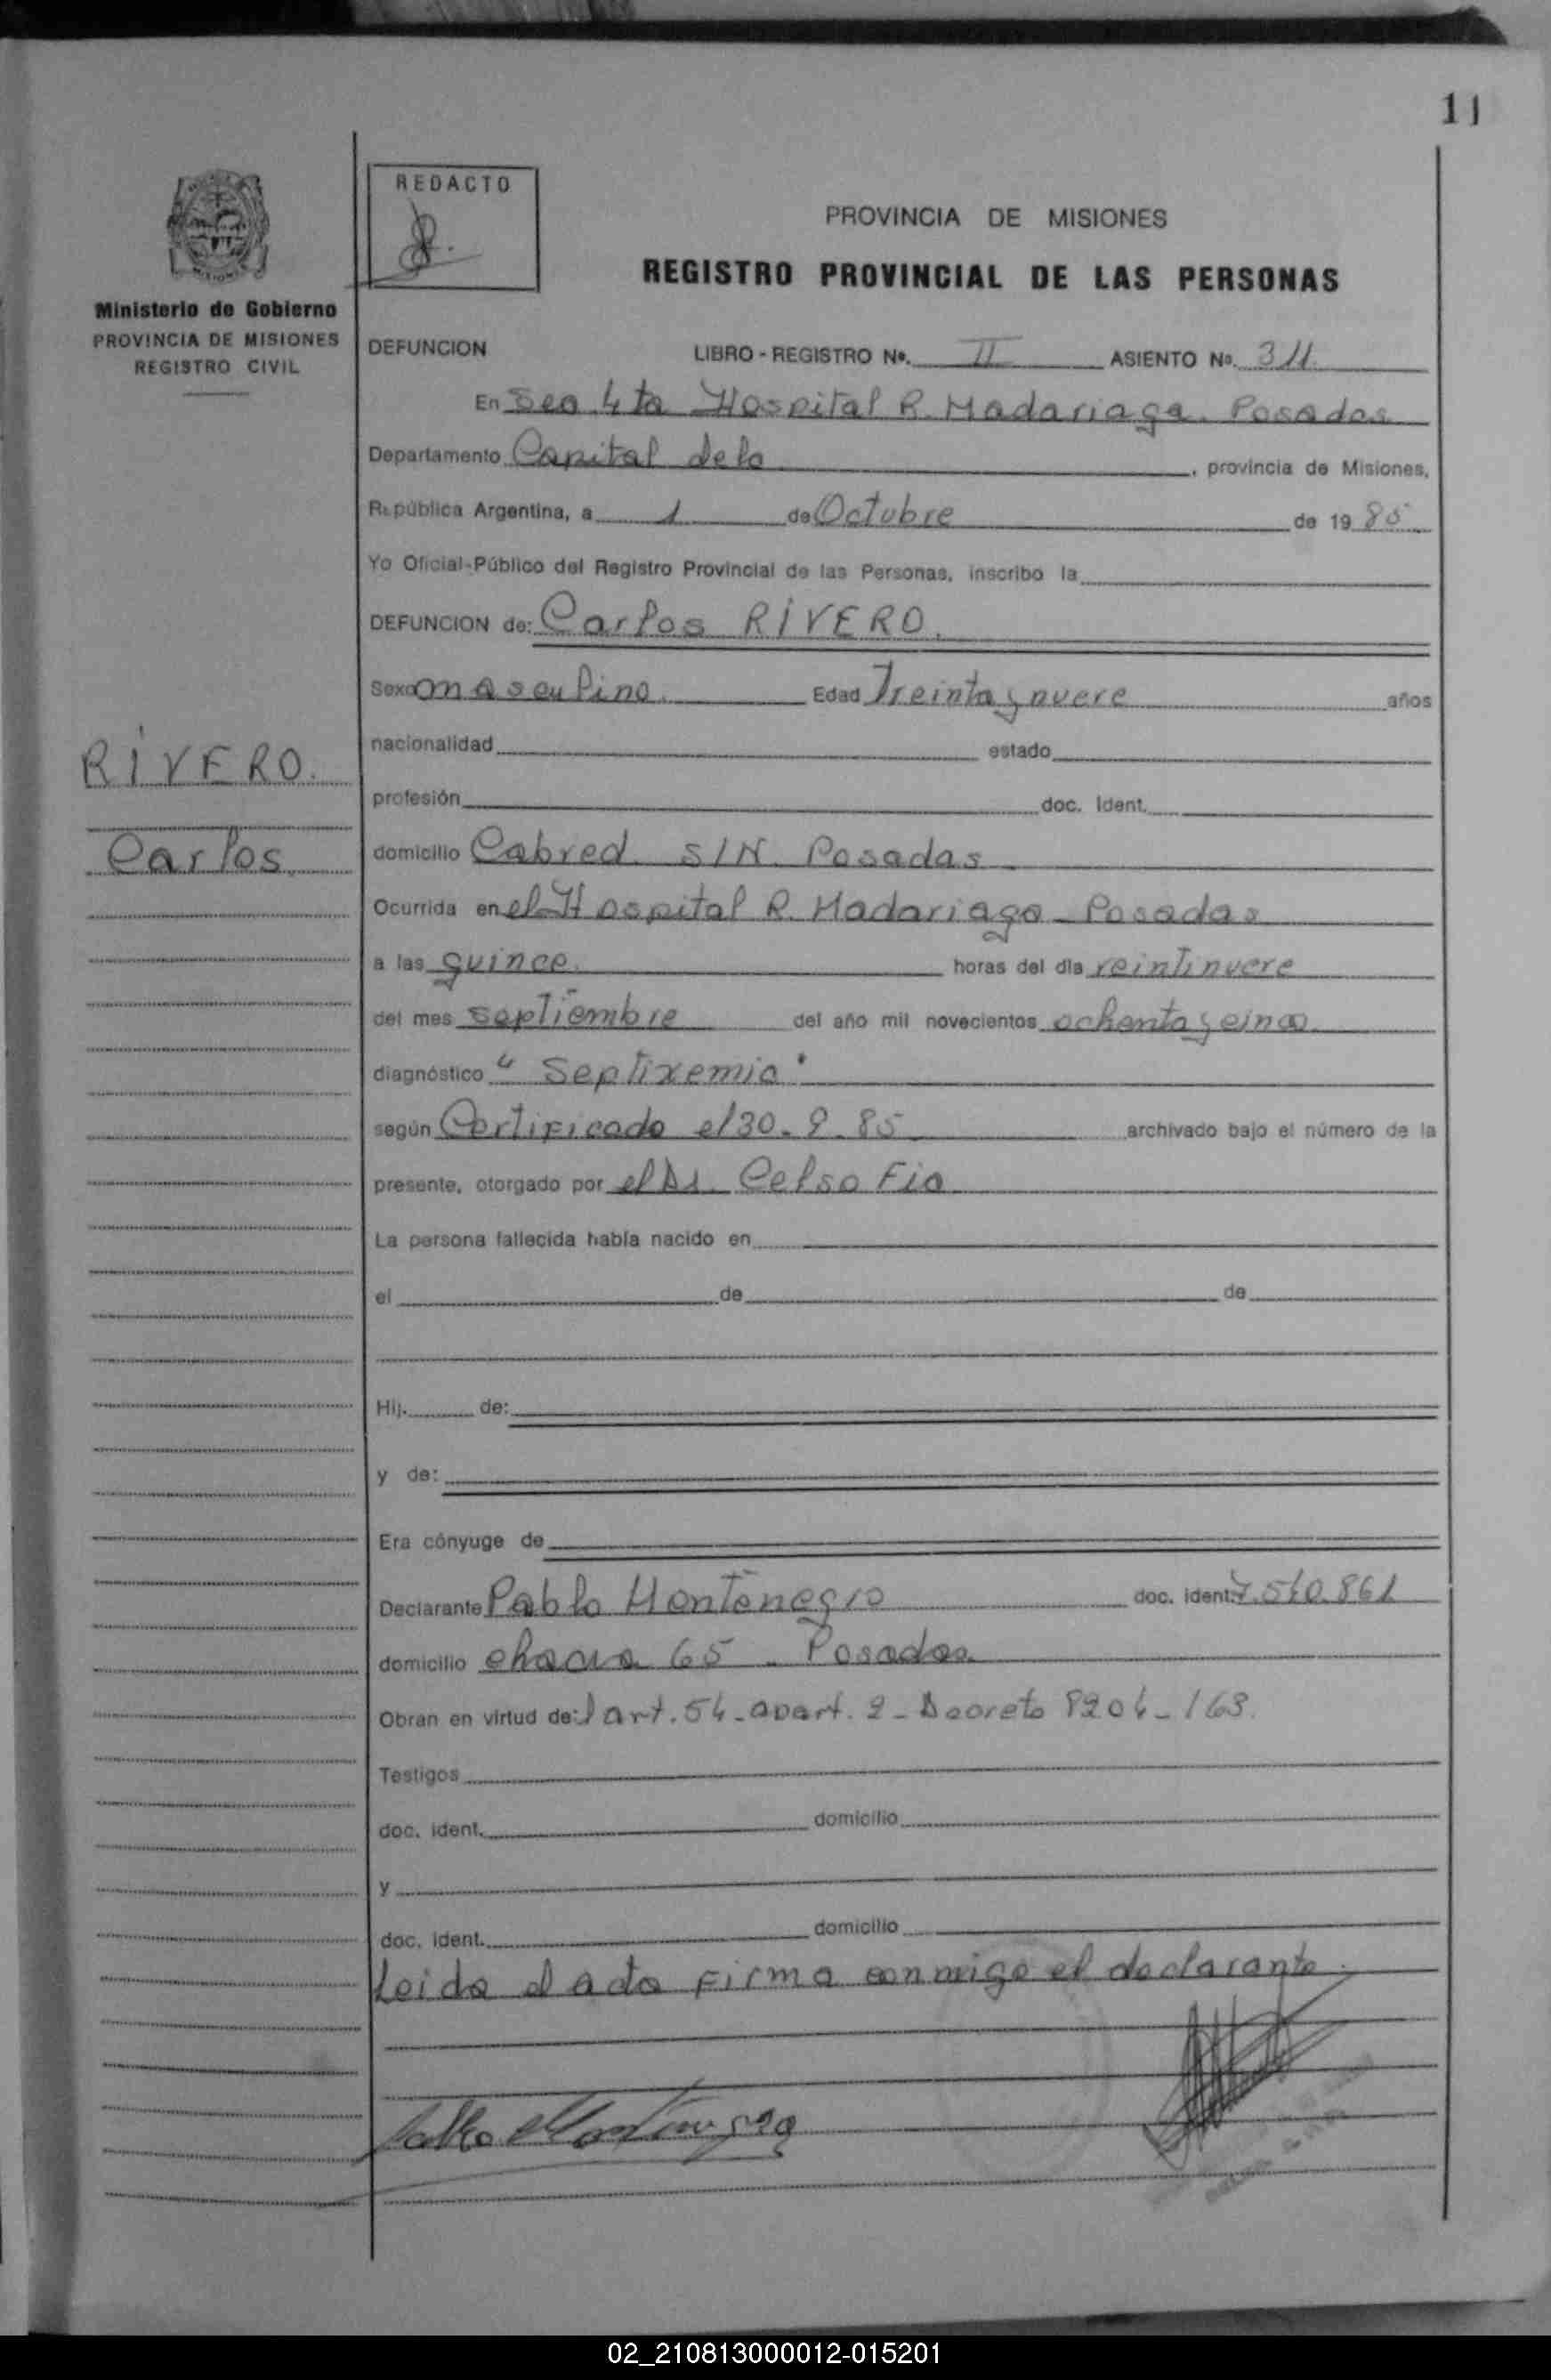 11
REDACTO
PROVINCIA DE MISIONES
REGISTRO PROVINCIAL DE LAS PERSONAS
Ministerio de Gobierno
PROVINCIA DE MISIONES
REGISTRO CIVIL
DEFUNCION LIBRO - REGISTRO Nº. II ASIENTO Nº. 311.
En Sec 4ta Hospital R. Madariaga. Posadas
Departamento Capital de la , provincia de Misiones,
República Argentina, a 1 de Octubre de 19 85
Yo Oficial-Público del Registro Provincial de las Personas, inscribo la
DEFUNCION de: Carlos RIVERO.
Sexo masculino. Edad Treinta y nueve años
nacionalidad estado
RIVERO.
profesión doc. Ident.
Carlos.
domicilio Cabred S/N. Posadas
Ocurrida en el Hospital R. Madariaga - Posadas
a las quince. horas del día veintinueve
del mes septiembre del año mil novecientos ochenta y cinco
diagnóstico "Septixemia"
según Certificado el 30. 9. 85 archivado bajo el número de la
presente, otorgado por el Dr. Celso Fia
La persona fallecida había nacido en
el de de
Hij. de:
y de:
Era cónyuge de
Declarante Pablo Montenegro doc. ident. 7.540.861
domicilio chacra 65 - Posadas.
Obran en virtud de: l art. 54 - apart. 2 - Decreto 8204 - /63.
Testigos
doc. ident. domicilio
y
doc. ident. domicilio
Leida el acta Firma conmigo el declarante.
Pablo Montenegro
02_210813000012-015201